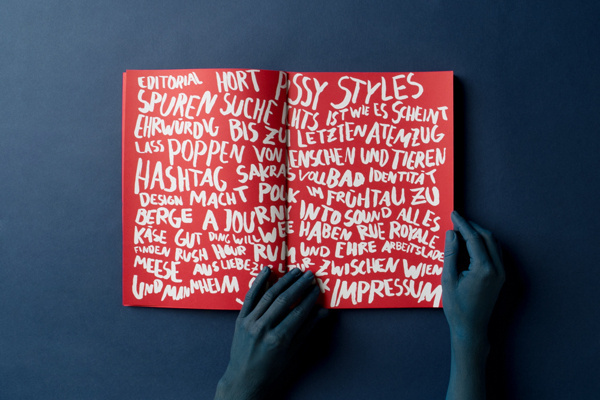 EDITORIAL HORT PUSSY STYLES
SPUREN SUCHE NICHTS IST WIE ES SCHEINT
EHRWÜRDIG BIS ZUM LETZTEN ATEMZUG
LASS POPPEN VON MENSCHEN UND TIEREN
HASHTAG SAKRALES VOLLBAD IDENTITÄT
DESIGN MACHT IM FRÜHTAU ZU
BERGE A JOURNEY INTO SOUND ALLES
KÄSE GUT DING WILL WEILE HABEN RUE ROYALE
FINDEN RUSH HOUR RUHM UND EHRE ARBEITSLADE
MEESE AUS LIEBE ZWISCHEN WIEN
UND MANNHEIM IMPRESSUM